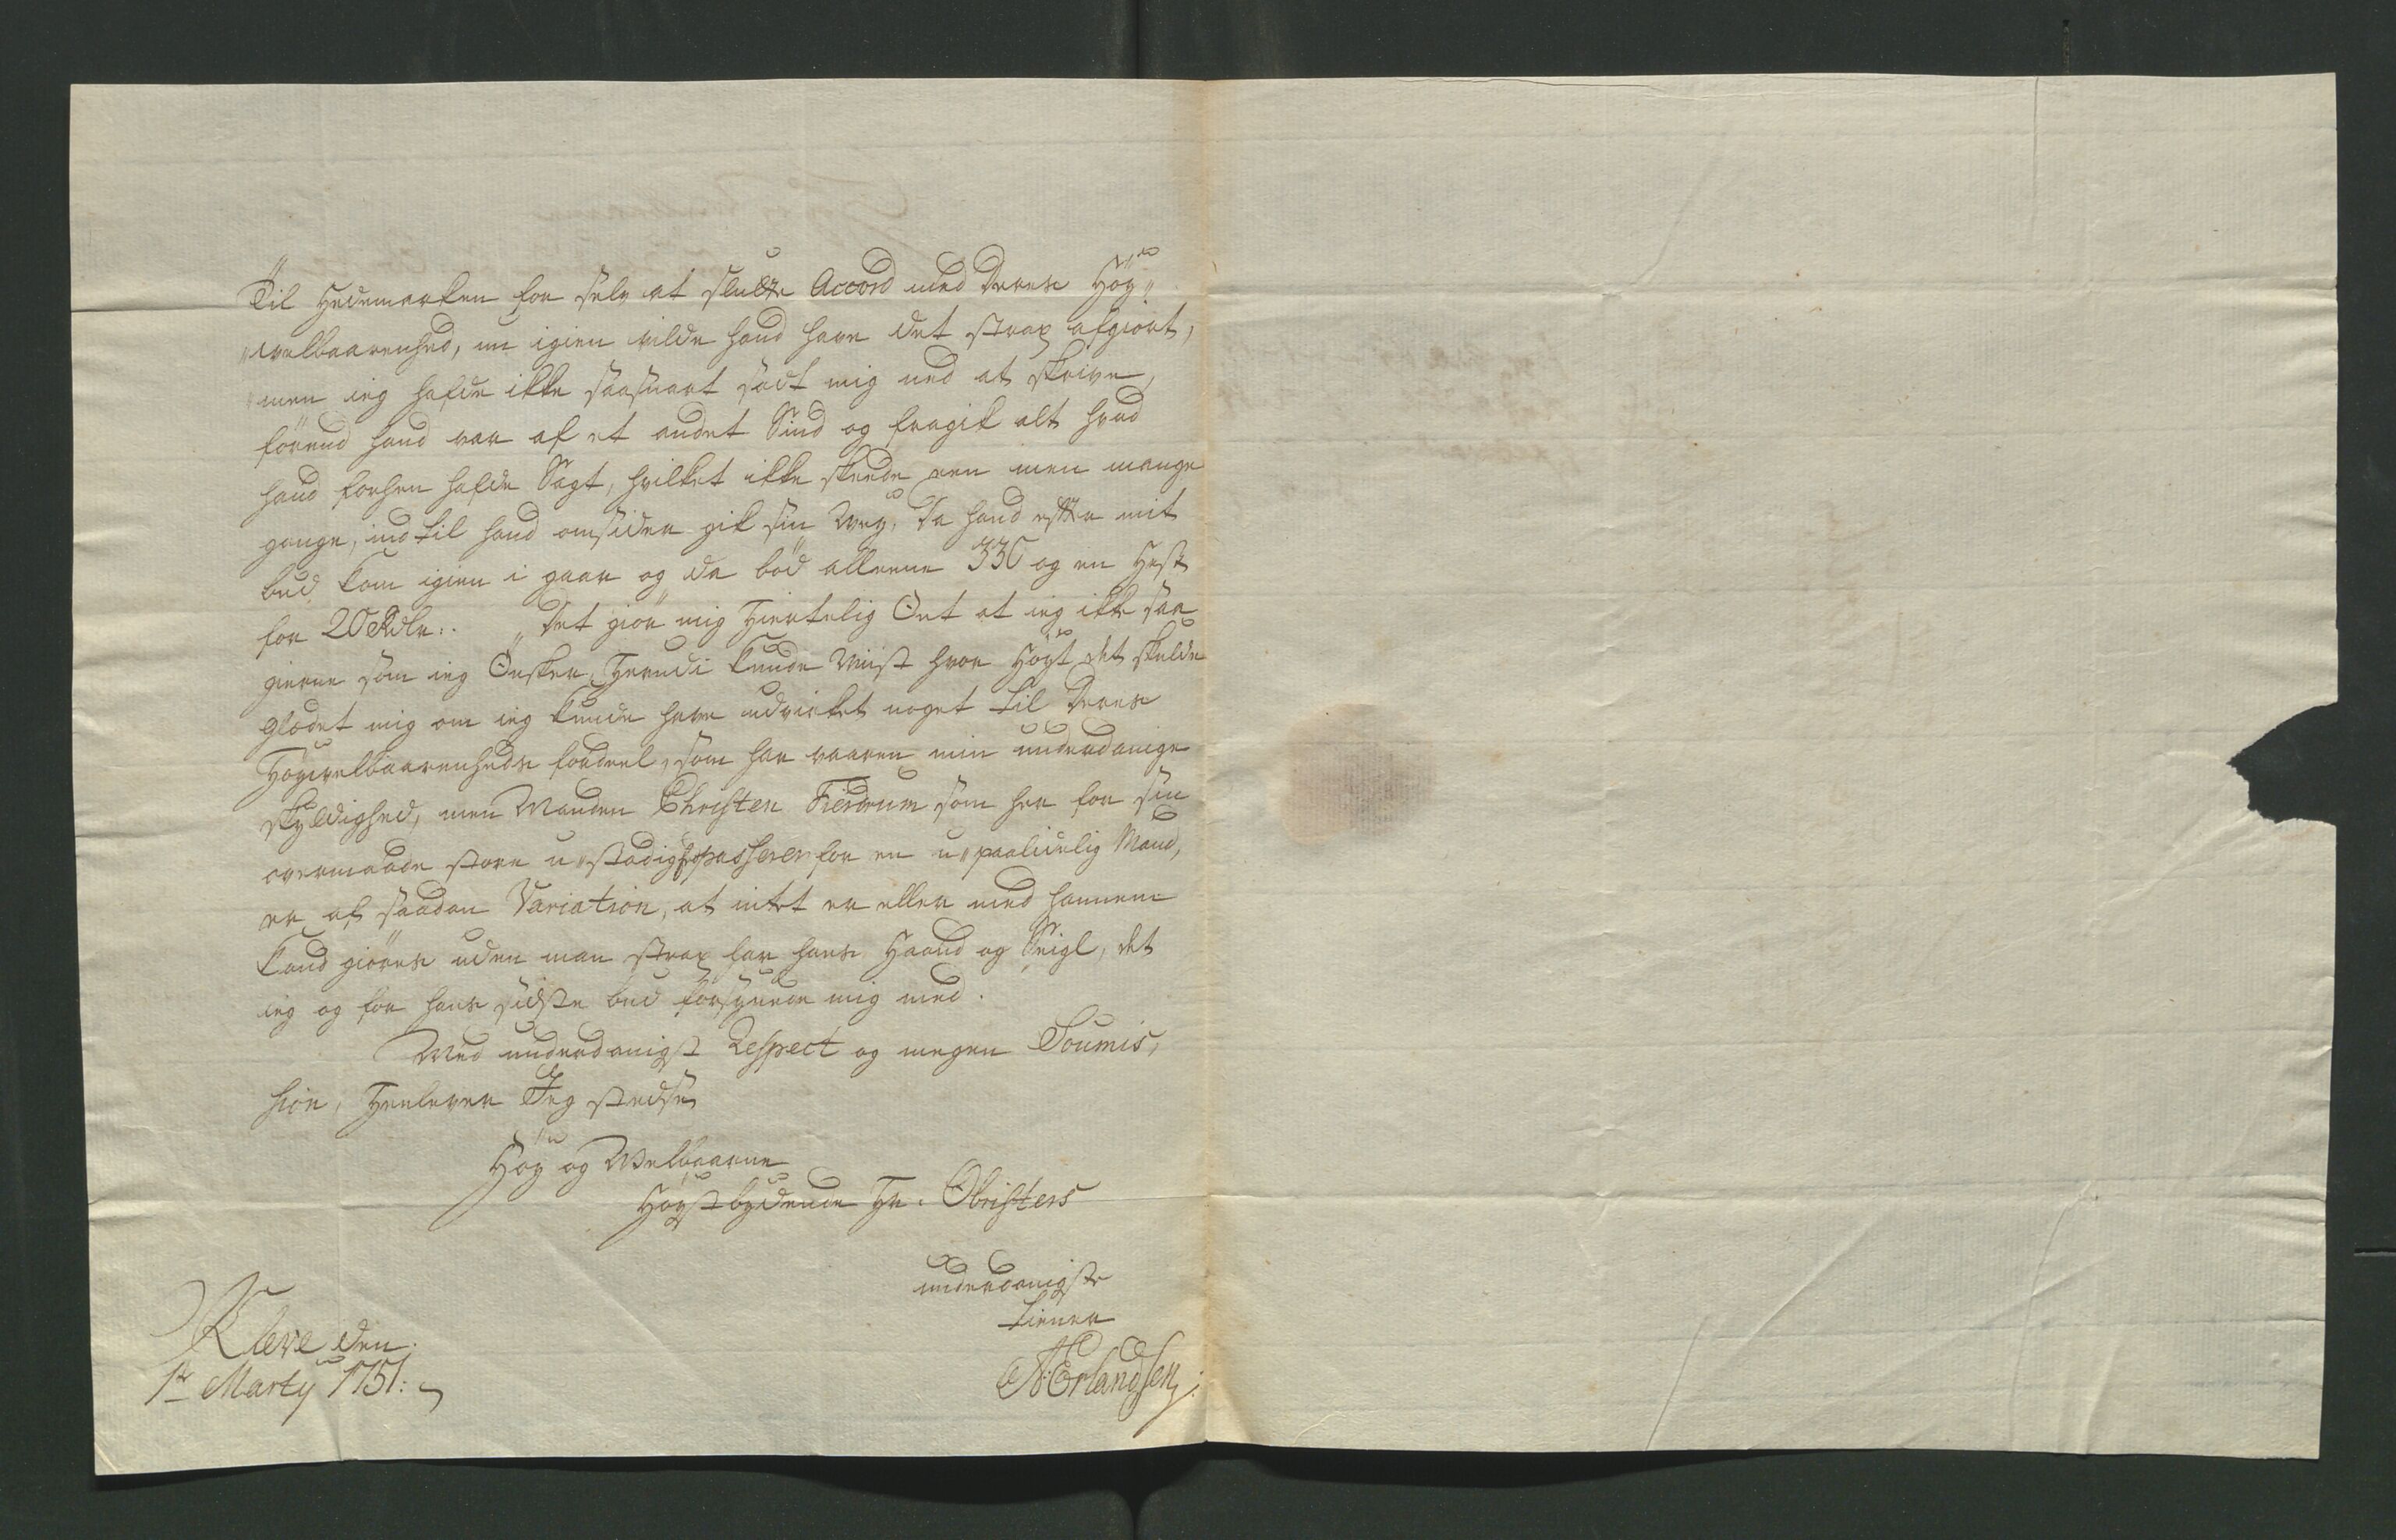 Til Hedemarken for selv at slutte Accord med Deres Høy„
„welbaarenhed, nu igien vilde hand have det strax afgiort,
men ieg hafde ikke saasnart sadt mig ned at skrive,
førend hand var af et andet Sind og fragik alt hvad
hand forhen hafde Sagt, hvilket ikke skeede een men mange
gange, ind til hand omsider gik sin Weg, Da hand efter mit
bud kom igien i gaar og da bød alleene 330 og en Hest
for 20 Rdlr:. Det giør mig Hiertelig Ont at ieg ikke saa
gierne som ieg Ønsker, Herudi kunde Wiist hvor Høyt det skulde
glædet mig om ieg kunde have udvirket noget til Deres
Høywelbaarenheds fordeel, som har vaaren min underdanige
skyldighed, men Manden Christen Fierdrum som her for sin
overmaade store u„stadighed passerer for en u„paalidelig Mand,
er af saadan Variation, at intet er eller med hannem
kand giøres uden man strax har hans Haand og Seigl, det
ieg og for hans sidste bud forsynede mig med.
Med underdanigst Respect og megen Soumis,
sion, Henlever Jeg stedse
Høy og Welbaarne
Høystbydende Hr. Obristers
underdanigste
tiener
A: Erlandsen
Kleve den
1te Marty 1751: